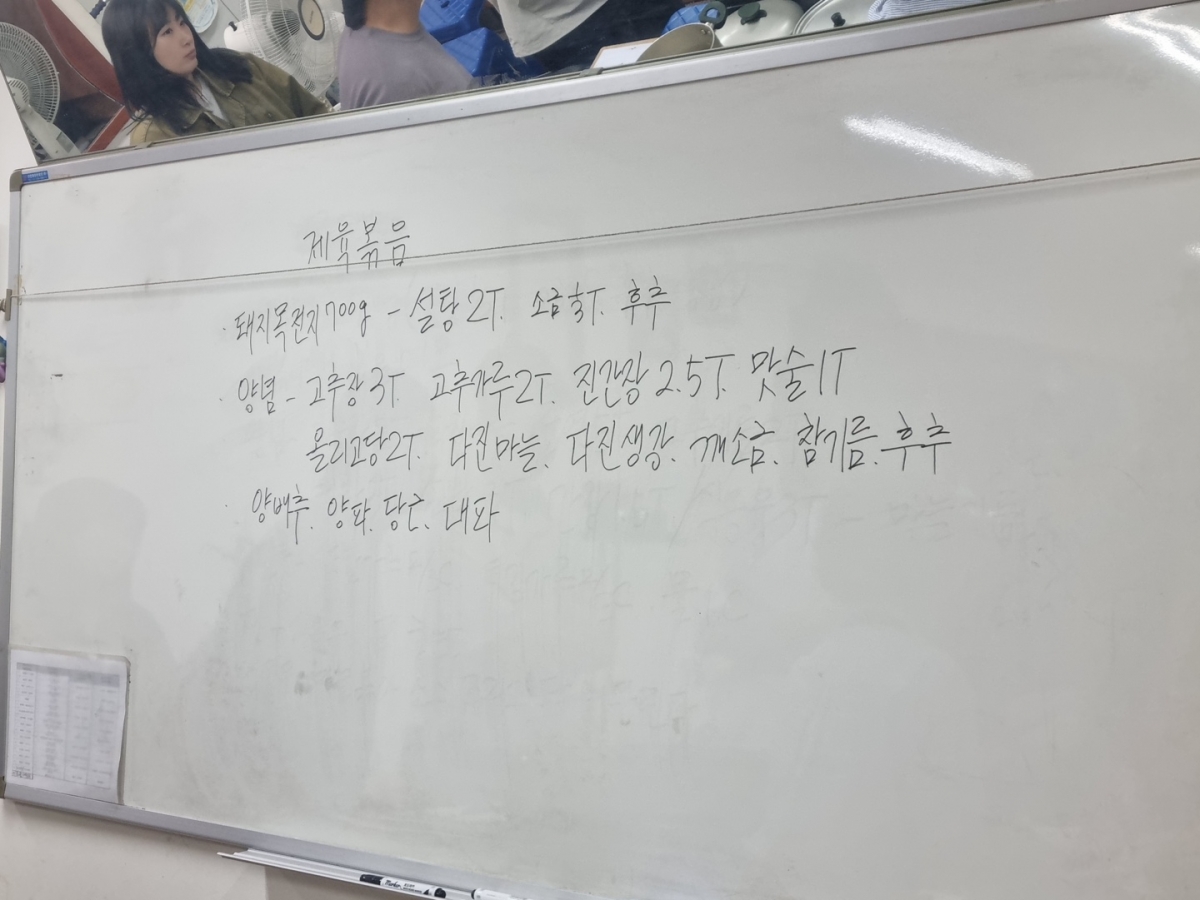 제육볶음
· 돼지목전지 700g - 설탕 2T. 소금 ⅓T. 후추
· 양념 - 고추장 3T. 고추가루 2T. 진간장 2.5T. 맛술 1T
올리고당 2T. 다진마늘. 다진생강. 깨소금. 참기름. 후추
· 양배추. 양파. 당근. 대파